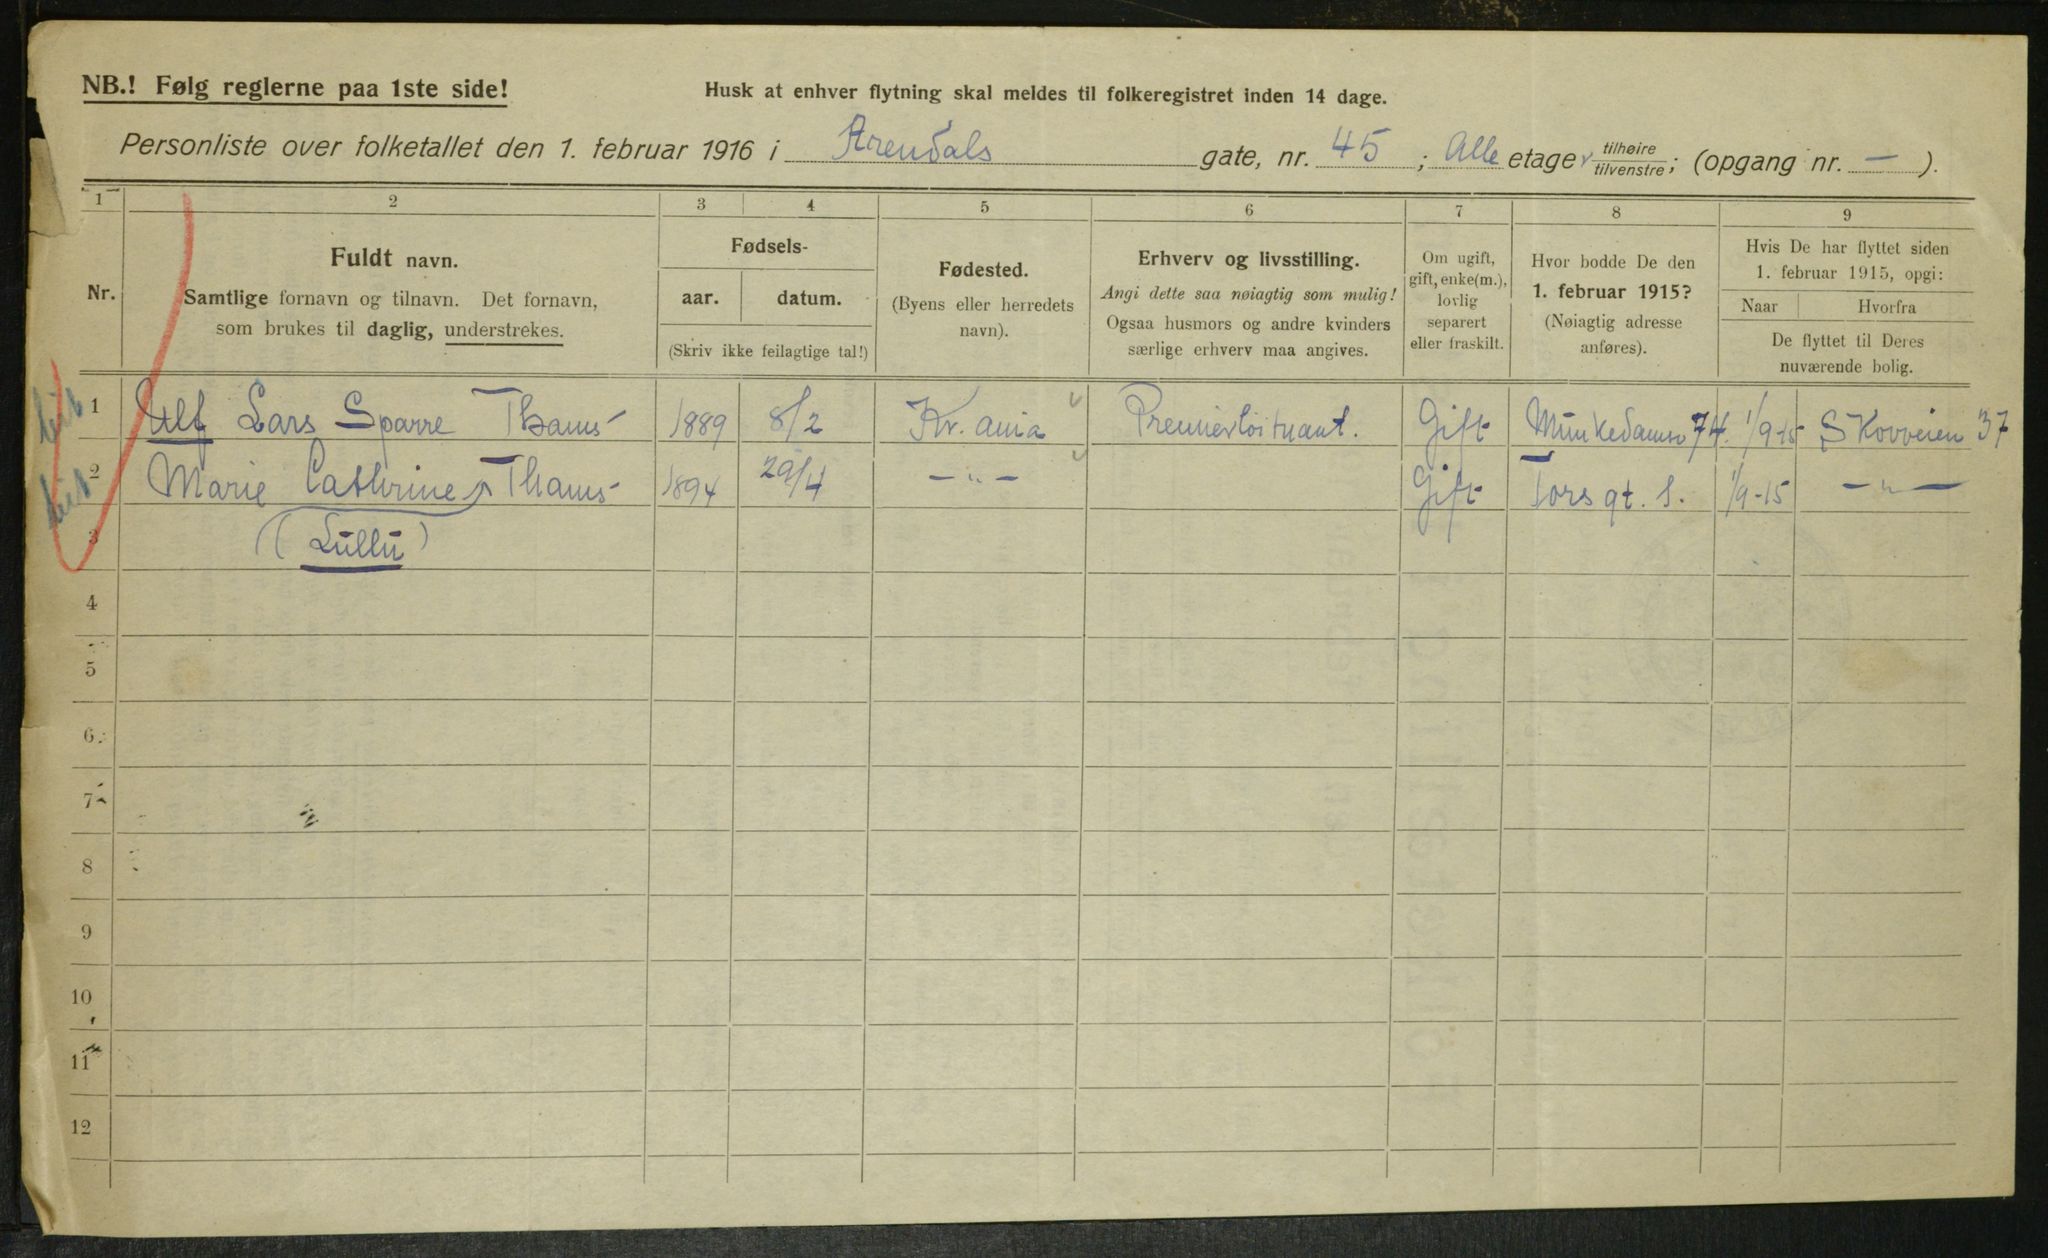 NB.! Følg reglerne paa 1ste side!
Husk at enhver flytning skal meldes til folkeregistret inden 14 dage.
Personliste over folketallet den 1. februar 1916 i Arendals gate, nr. 45; Alle etage tilhøire tilvenstre; (opgang nr. — ).
1 2 3 4 5 6 7 8 9
Nr.
Fuldt navn.
Samtlige fornavn og tilnavn. Det fornavn,
som brukes til daglig, understrekes.
Fødsels-
aar. datum.
(Skriv ikke feilagtige tal!)
Fødested.
(Byens eller herredets
navn).
Erhverv og livsstilling.
Angi dette saa nøiagtig som mulig!
Ogsaa husmors og andre kvinders
særlige erhverv maa angives.
Om ugift,
gift, enke(m.),
lovlig
separert
eller fraskilt.
Hvor bodde De den
1. februar 1915?
(Nøiagtig adresse
anføres).
Hvis De har flyttet siden
1. februar 1915, opgi:
Naar Hvorfra
De flyttet til Deres
nuværende bolig.
1 Ulf Lars Sparre Thams 1889 8/2 Kr.ania Premierløitnant. Gift Munkedamsv 74. 1/9-15 Skovveien 37
2 Marie Cathrine Thams 1894 29/4 — " — Gift Tors gt. 1. 1/9-15 — " —
3 (Lūllū)
4
5
6
7
8
9
10
11
12